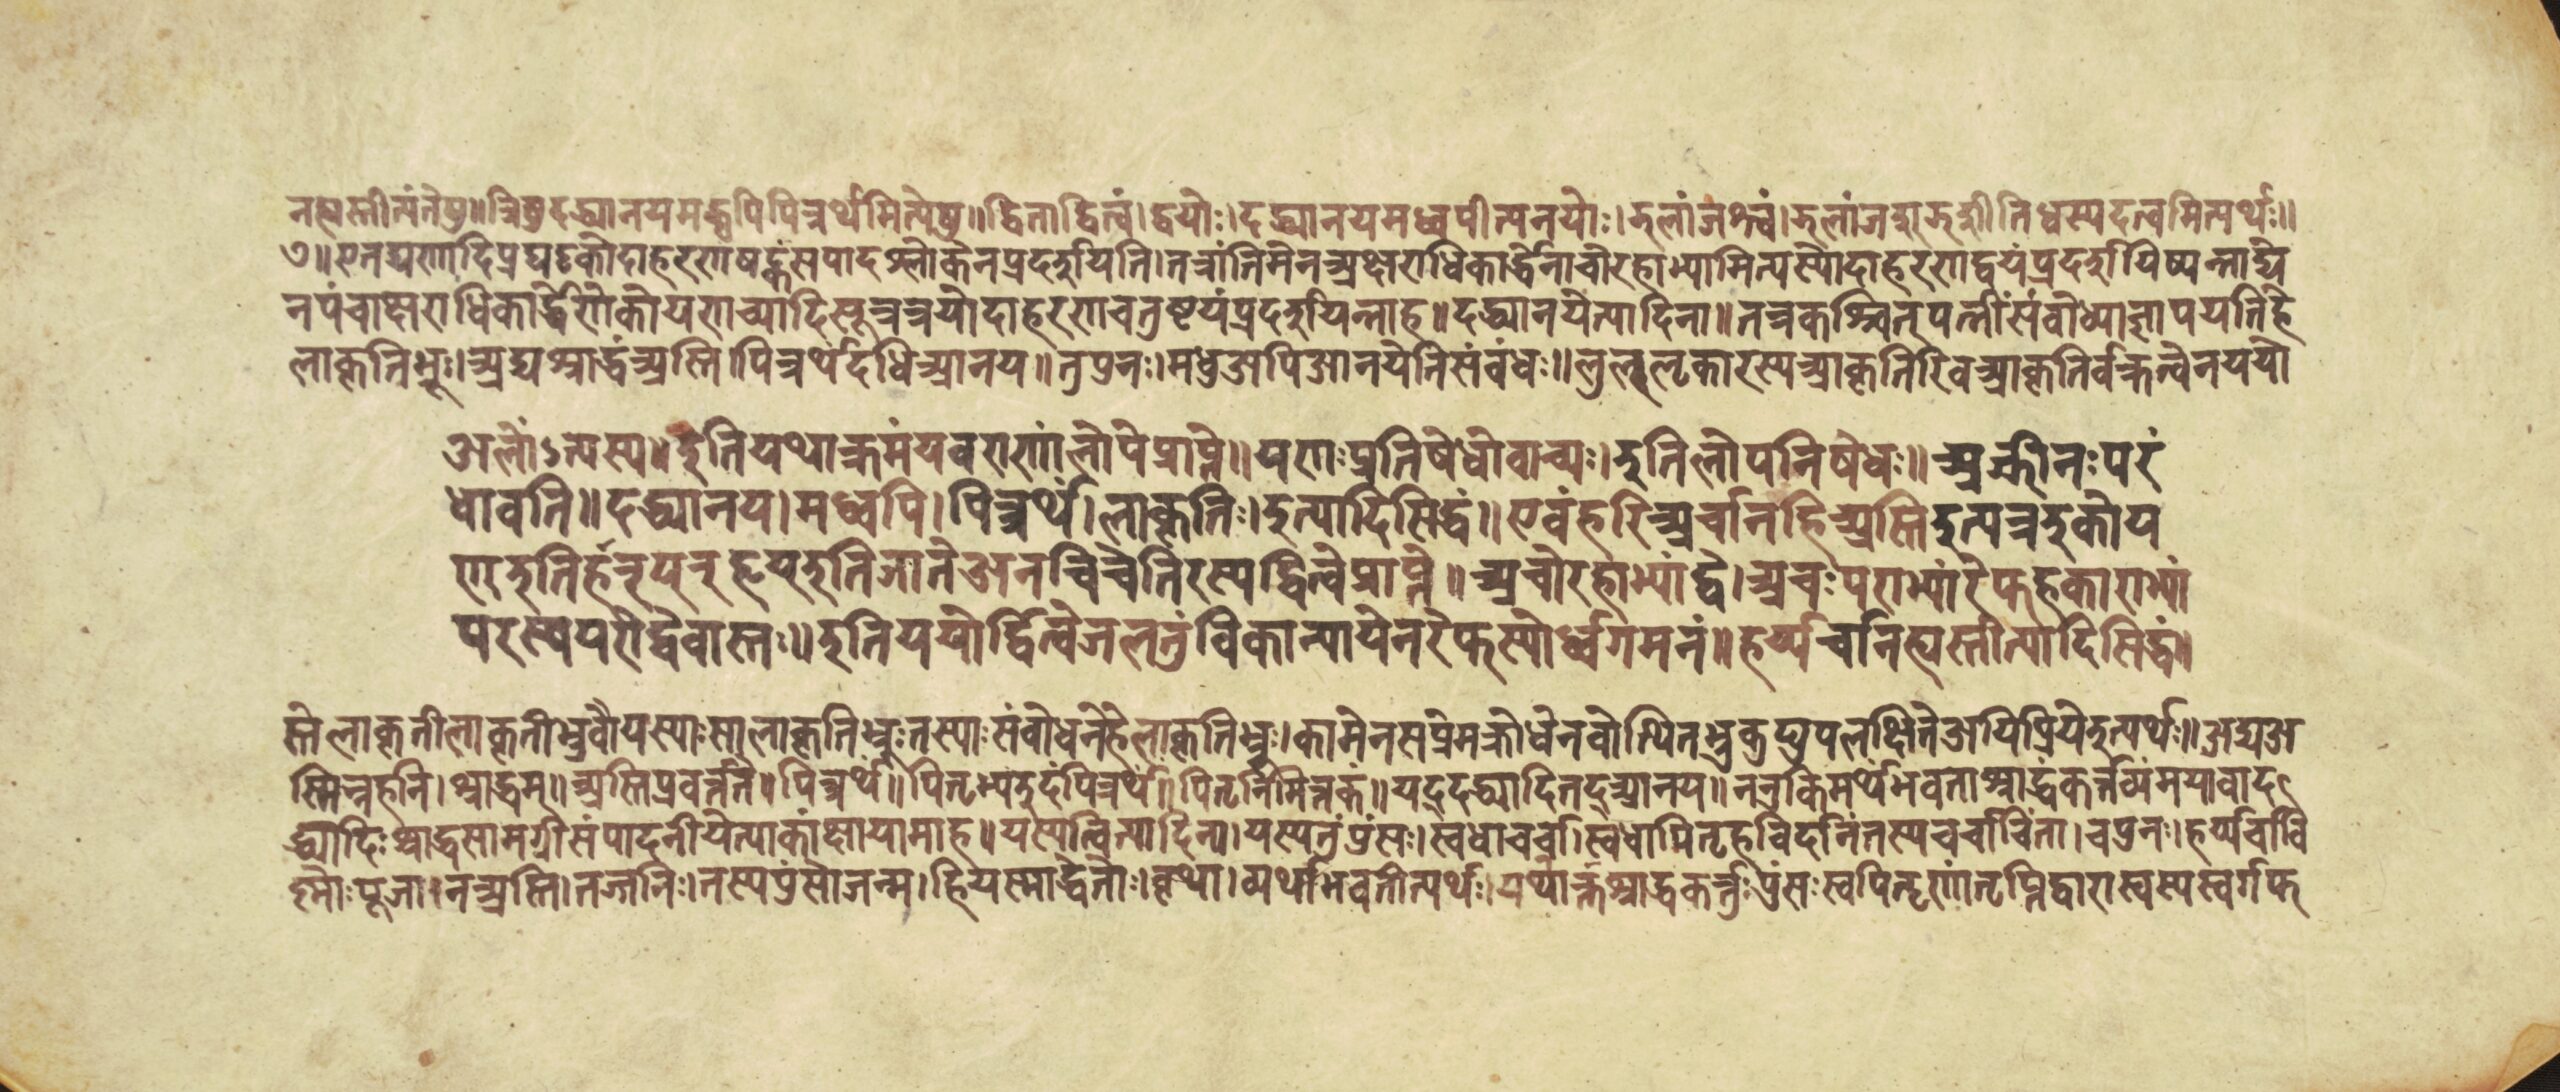 नह्यस्तीत्यंतेषु॥त्रिषुदद्ध्यानयमद्ध्वपिपित्रर्थमित्येषु॥द्वितोद्वित्वं।द्वयोः।दद्ध्यानयमध्वपीत्यनयोः।झलांजश्त्वं।झलांजशझशीतिधस्यदत्वमित्यर्थः॥
७॥एनद्यणादिप्रघट्टकोदाहरणषट्कंसपादश्लोकेनप्रदर्शयति।तत्रांतिमेनअक्षराधिकार्द्धेनाचोरहाभ्यामित्यस्योदाहरणद्वयंप्रदर्शयिष्यन्नाद्ये
नपंचाक्षराधिकार्द्धेनेकोयणाच्यादिसूत्रत्रयोदाहरणचतुष्टयंप्रदर्शयिन्नाह॥दद्ध्यानयेत्यादिना॥तत्रकश्चित्पत्नींसंबोध्याज्ञापयतिहे
लाकृतिभ्रूः।अद्यश्राद्धंअस्ति।पित्रर्थंदधिआनय॥तुपुनः।मधुअपिआनयेतिसंबंधः॥लुलृलृकारस्यआकृतिरिवआकृतिर्वक्रत्वेनययो
अलोंऽत्यस्य॥इतियथाक्रमंयवराणांलोपेप्राप्ते॥यणःप्रतिषेधोवाच्यः।इतिलोपनिषेधः॥अज्झीनःपरं
धावति॥दद्ध्यानय।मध्वपि।पित्रर्थं।लाकृतिः।इत्यादिसिद्धं॥एवंहरिअर्चानहिअस्तिइत्यत्रइकोय
ण्इतिर्हर्य्यर्नह्य्इतिजातेअनचिचेतिरस्यद्वित्वेप्राप्ते॥अचोरहाभ्यांद्वे।अचःपराभ्यांरेफहकाराभ्यां
परस्ययरोद्वेवास्तः॥इतिययोर्द्वित्वेजलतुंविकान्यायेनरेफस्योर्ध्वगमनं॥हर्य्यर्चानह्यस्तीत्यादिसिद्धं॥
स्तेलाकृतीलाकृतीभ्रुवौयस्याःसालाकृतिभ्रूःतस्याःसंबोधनेहेलाकृतिभ्रूः।कामेनसप्रेमक्रोधेनवोत्थितभ्रुकुट्युपलक्षितेअयिप्रियेइत्यर्थः॥अद्यअ
स्मिन्नहनि।श्राद्धम्॥अस्तिप्रवर्त्तते॥पित्रर्थं॥पितृभ्यइदंपित्रर्थं॥पितृनिमित्तकं॥यद्दद्ध्यादितद्आनय॥ननुकिमर्थंभवताश्राद्धंकर्त्तव्यंमयावाद
द्ध्यादिःश्राद्धसामग्रीसंपादनीयेत्याकांक्षायामाह॥यस्यत्वित्यादिन्य।यस्यतुपुंसः।स्वधाचर्चा।स्वधापितृहविर्दानंतस्यचर्चाचिंता।चपुनः।हर्य्यर्चावि
ष्णोःपूजा।नअस्ति।तज्जनिः।तस्यपुंसोजन्म।हियस्माद्धेतोः।वृथा।व्यर्थाभवतीत्यर्थः।यथोक्तश्राद्धकर्त्तुःपुंसःस्वपितृणांतृप्तिद्वारास्वस्यस्वर्गफ